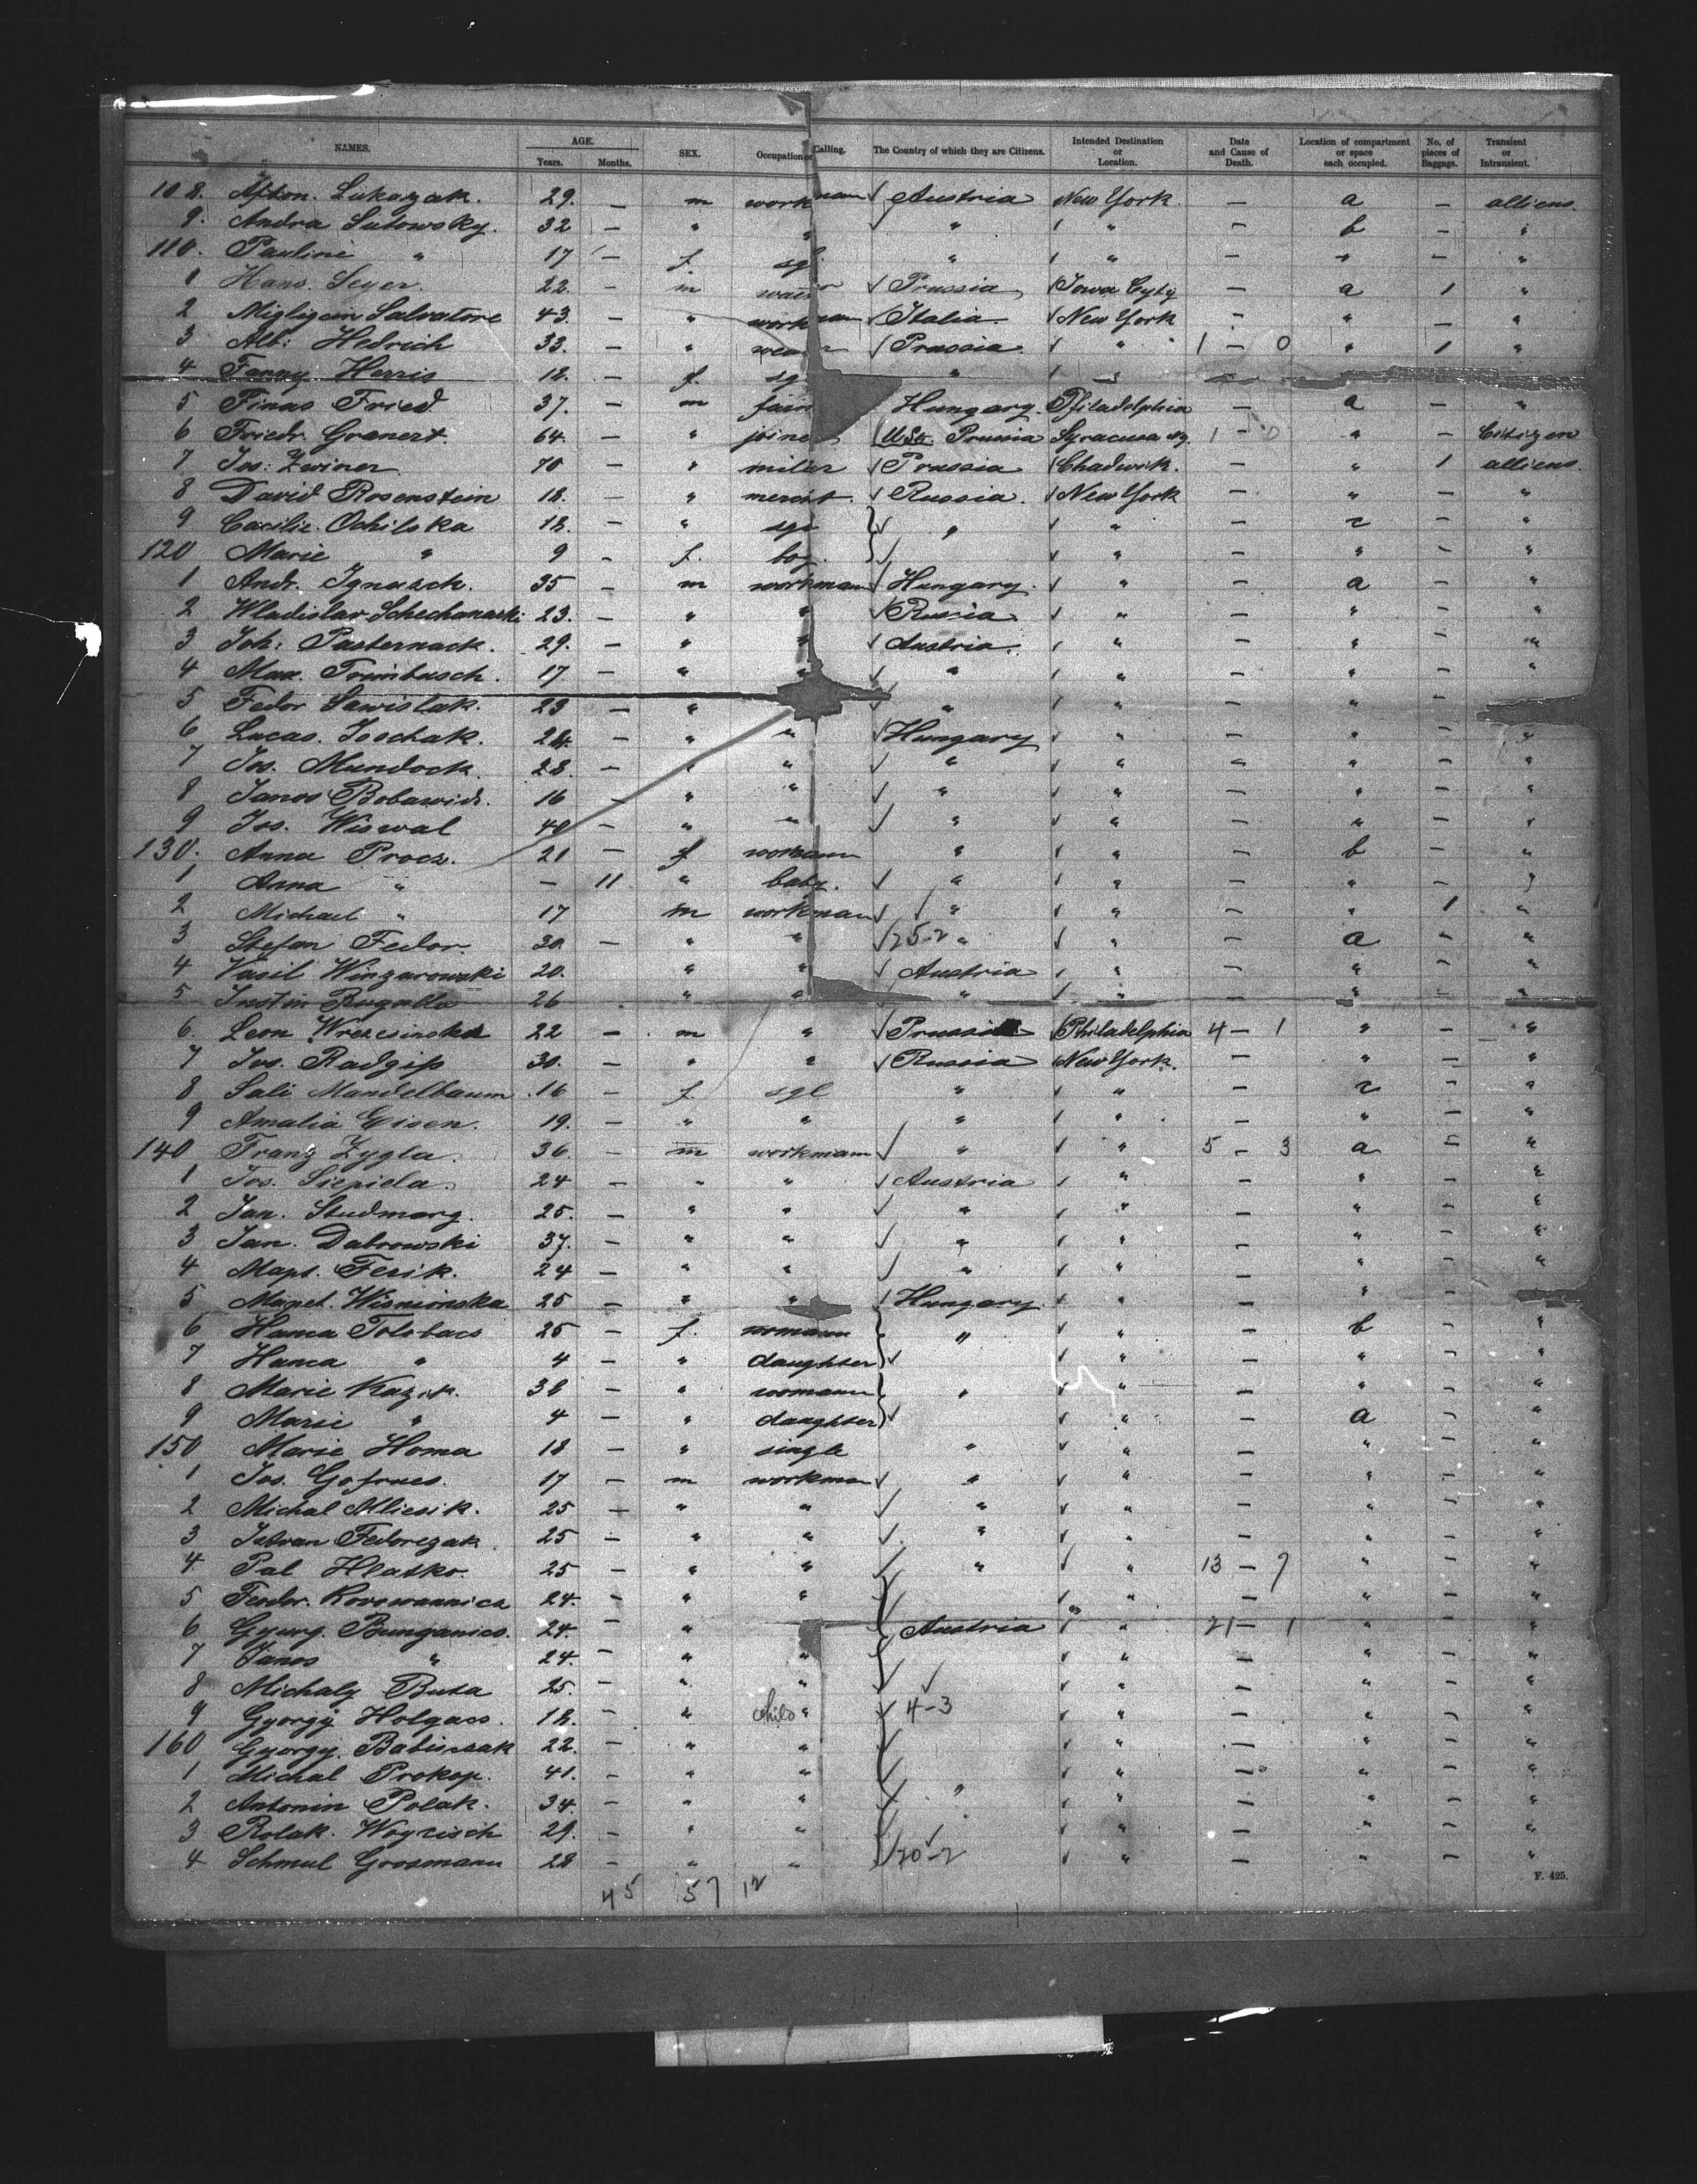 NAMES. AGE. Years. Months. SEX. Occupation or Calling. The Country of which they are Citizens. Intended Destination or Location. Date and Cause of Death. Location of compartment or space each occupied. No. of pieces of Baggage. Transient or Intransient.
108. Lukazak. 29. — m workman Austria New York — a — alliens.
9. Andra Sutowsky. 32 — " " " " — b — "
110. Pauline " 17 — f. sgl " " — " — "
1 Hans. Seyer. 22. — m Prussia Iowa Cyty — a 1 "
2 Migligcin Salvatore 43. — " workman Italia New York — " — "
3 Alb: Hedrich 33. — " Prussia. " 1 — 0 " 1 "
4 Fanny Herris 18. — f. sgl " " —
5 Pinas Fried. 37. — m Hungary. Philadelphia — a — "
6 Friedr. Granert. 64. — " joiner USA. Prussia Syracusa ny. 1 — 0 " — Citizen
7 Jos: Zwiner 70 — " miller Prussia Chadwik. — " 1 alliens
8 David Rosenstein 18. — " mercht. Russia. New York — " — "
9 Cacilie. Ochilska 18. — " sgl " " — r — "
120 Marie " 9 — f. boy. " — " — "
1 Andr. Ignasch. 35 — m workman Hungary. " — a — "
2 Wladislav Schechanaski 23. — " " Russia " — " — "
3 Joh: Pasternack. 29. — " " Austria. " — " — "
4 Max. Trimbusch. 17 — " " " " — " — "
5 Fedor Sawislak. 23 — " " " — " —
6 Lucas. Ioschak. 24. — " " Hungary " — " — "
7 Jos. Mundock. 28. — " " " " — " — "
8 Janos Bobawich. 16 — " " " " — " — "
9 Jos. Wiswal 40 — " " " " — " — "
130. Anna Procz. 21 — f womann " " — b — "
1 Anna " — 11 " baby. " " — " — "
2 Michael " 17 m workman " " — " 1 "
3 Stefan Fedor. 30. — " " 25-2 " " — a — "
4 Vasil Winzarowski 20. " " Austria " — " — "
5 Justin Bugalla 26 " " " " " — "
6. Leon Wrezesinska 22 — m " Prussia Philadelphia 4 — 1 " — "
7 Jos. Radgiss 30. — " " Russia New York. — " — "
8 Sali Mandelbaum. 16 — f. sgl " " — r — "
9 Amalia Eisen. 19. — " " " " — " — "
140 Franz Zygla. 36. — m workmann " " 5 — 3 a — "
1 Jos. Siepiela. 24 — " " Austria " — " — "
2 Jan. Studmarg. 25. — " " " " — " — "
3 Jan. Dabrowski 37. — " " " " — " — "
4 Ferik. 24 — " " " " — " — "
5 Wisnionska 25 — " " Hungary. " — " — "
6 Hanca Tolobacs 25 — f. womann " " — b — "
7 Hanca " 4 — " daughter " — " — "
8 Marie Kazik. 38 — " womann " " — " — "
9 Marie " 4 — " daughter " — a — "
150 Marie Homa 18 — " single " " — " — "
1 Jos. 17 — m workman " " — " — "
2 Michal 25 — " " " " — " — "
3 Istvan Fedorezak. 25 — " " " " — " — "
4. Pal Hlatko. 25 — " " " " 13 — 7 " — "
5 Feodor. 24. — " " " — " — "
6 Gyurg. Bunganics. 24. — " Austria " 21 — 1 " "
7 Janos " 24. — " " " — " — "
8 Michaly Busa 25. — " " " — " — "
9 György Holgacs. 18. — " child " 4-3 " — " — "
160 György. 22. — " " " — " — "
1 Michal Prokop. 41. — " " " — " — "
2 Antonin Polak. 34. — " " " " — " — "
3 Rolak. Woyzisch 29. — " " " — " — "
4 Schmul Goosmann 28 — " " 20-2 " — " — "
45 57 12
F. 425.